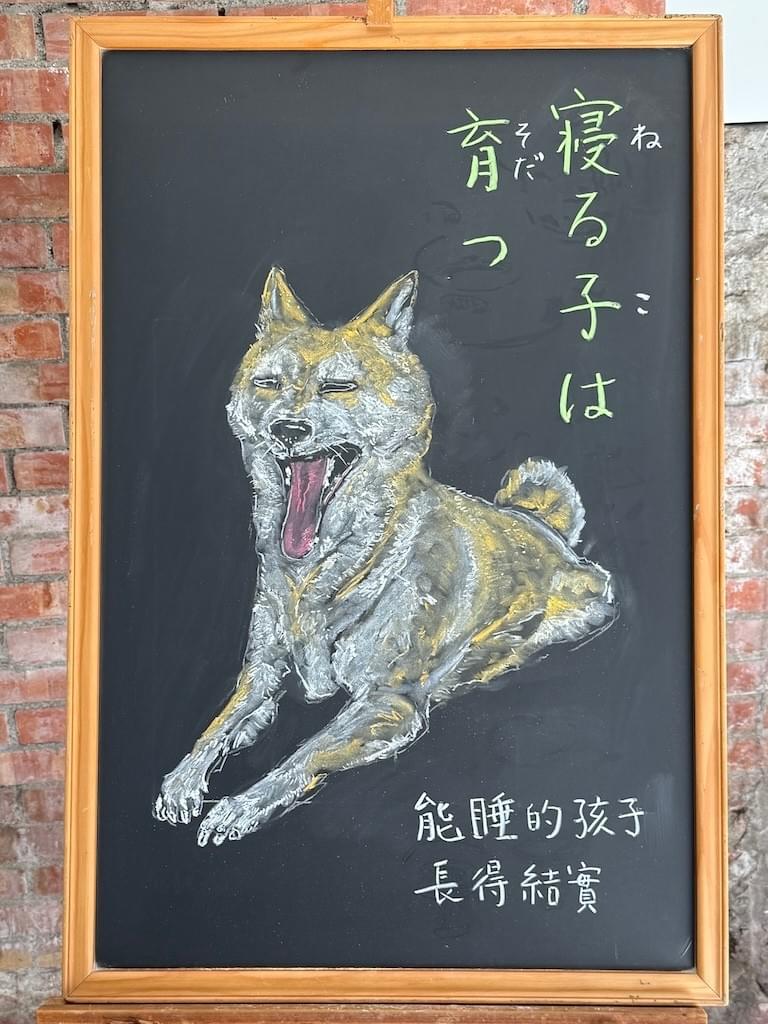 寝る子は
育つ
ね
こ
そだ
能睡的孩子
長得結實